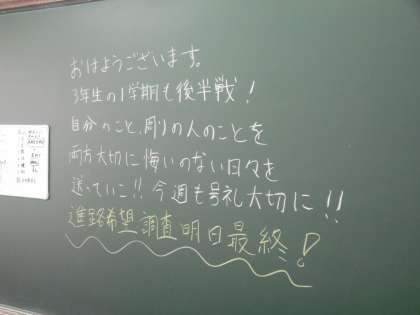 おはようございます。
3年生の1学期も後半戦！
自分のこと、周りの人のことを
両方大切に悔いのない日々を
送っていこ!! 今週も号礼大切に!!
進路希望調査明日最終!